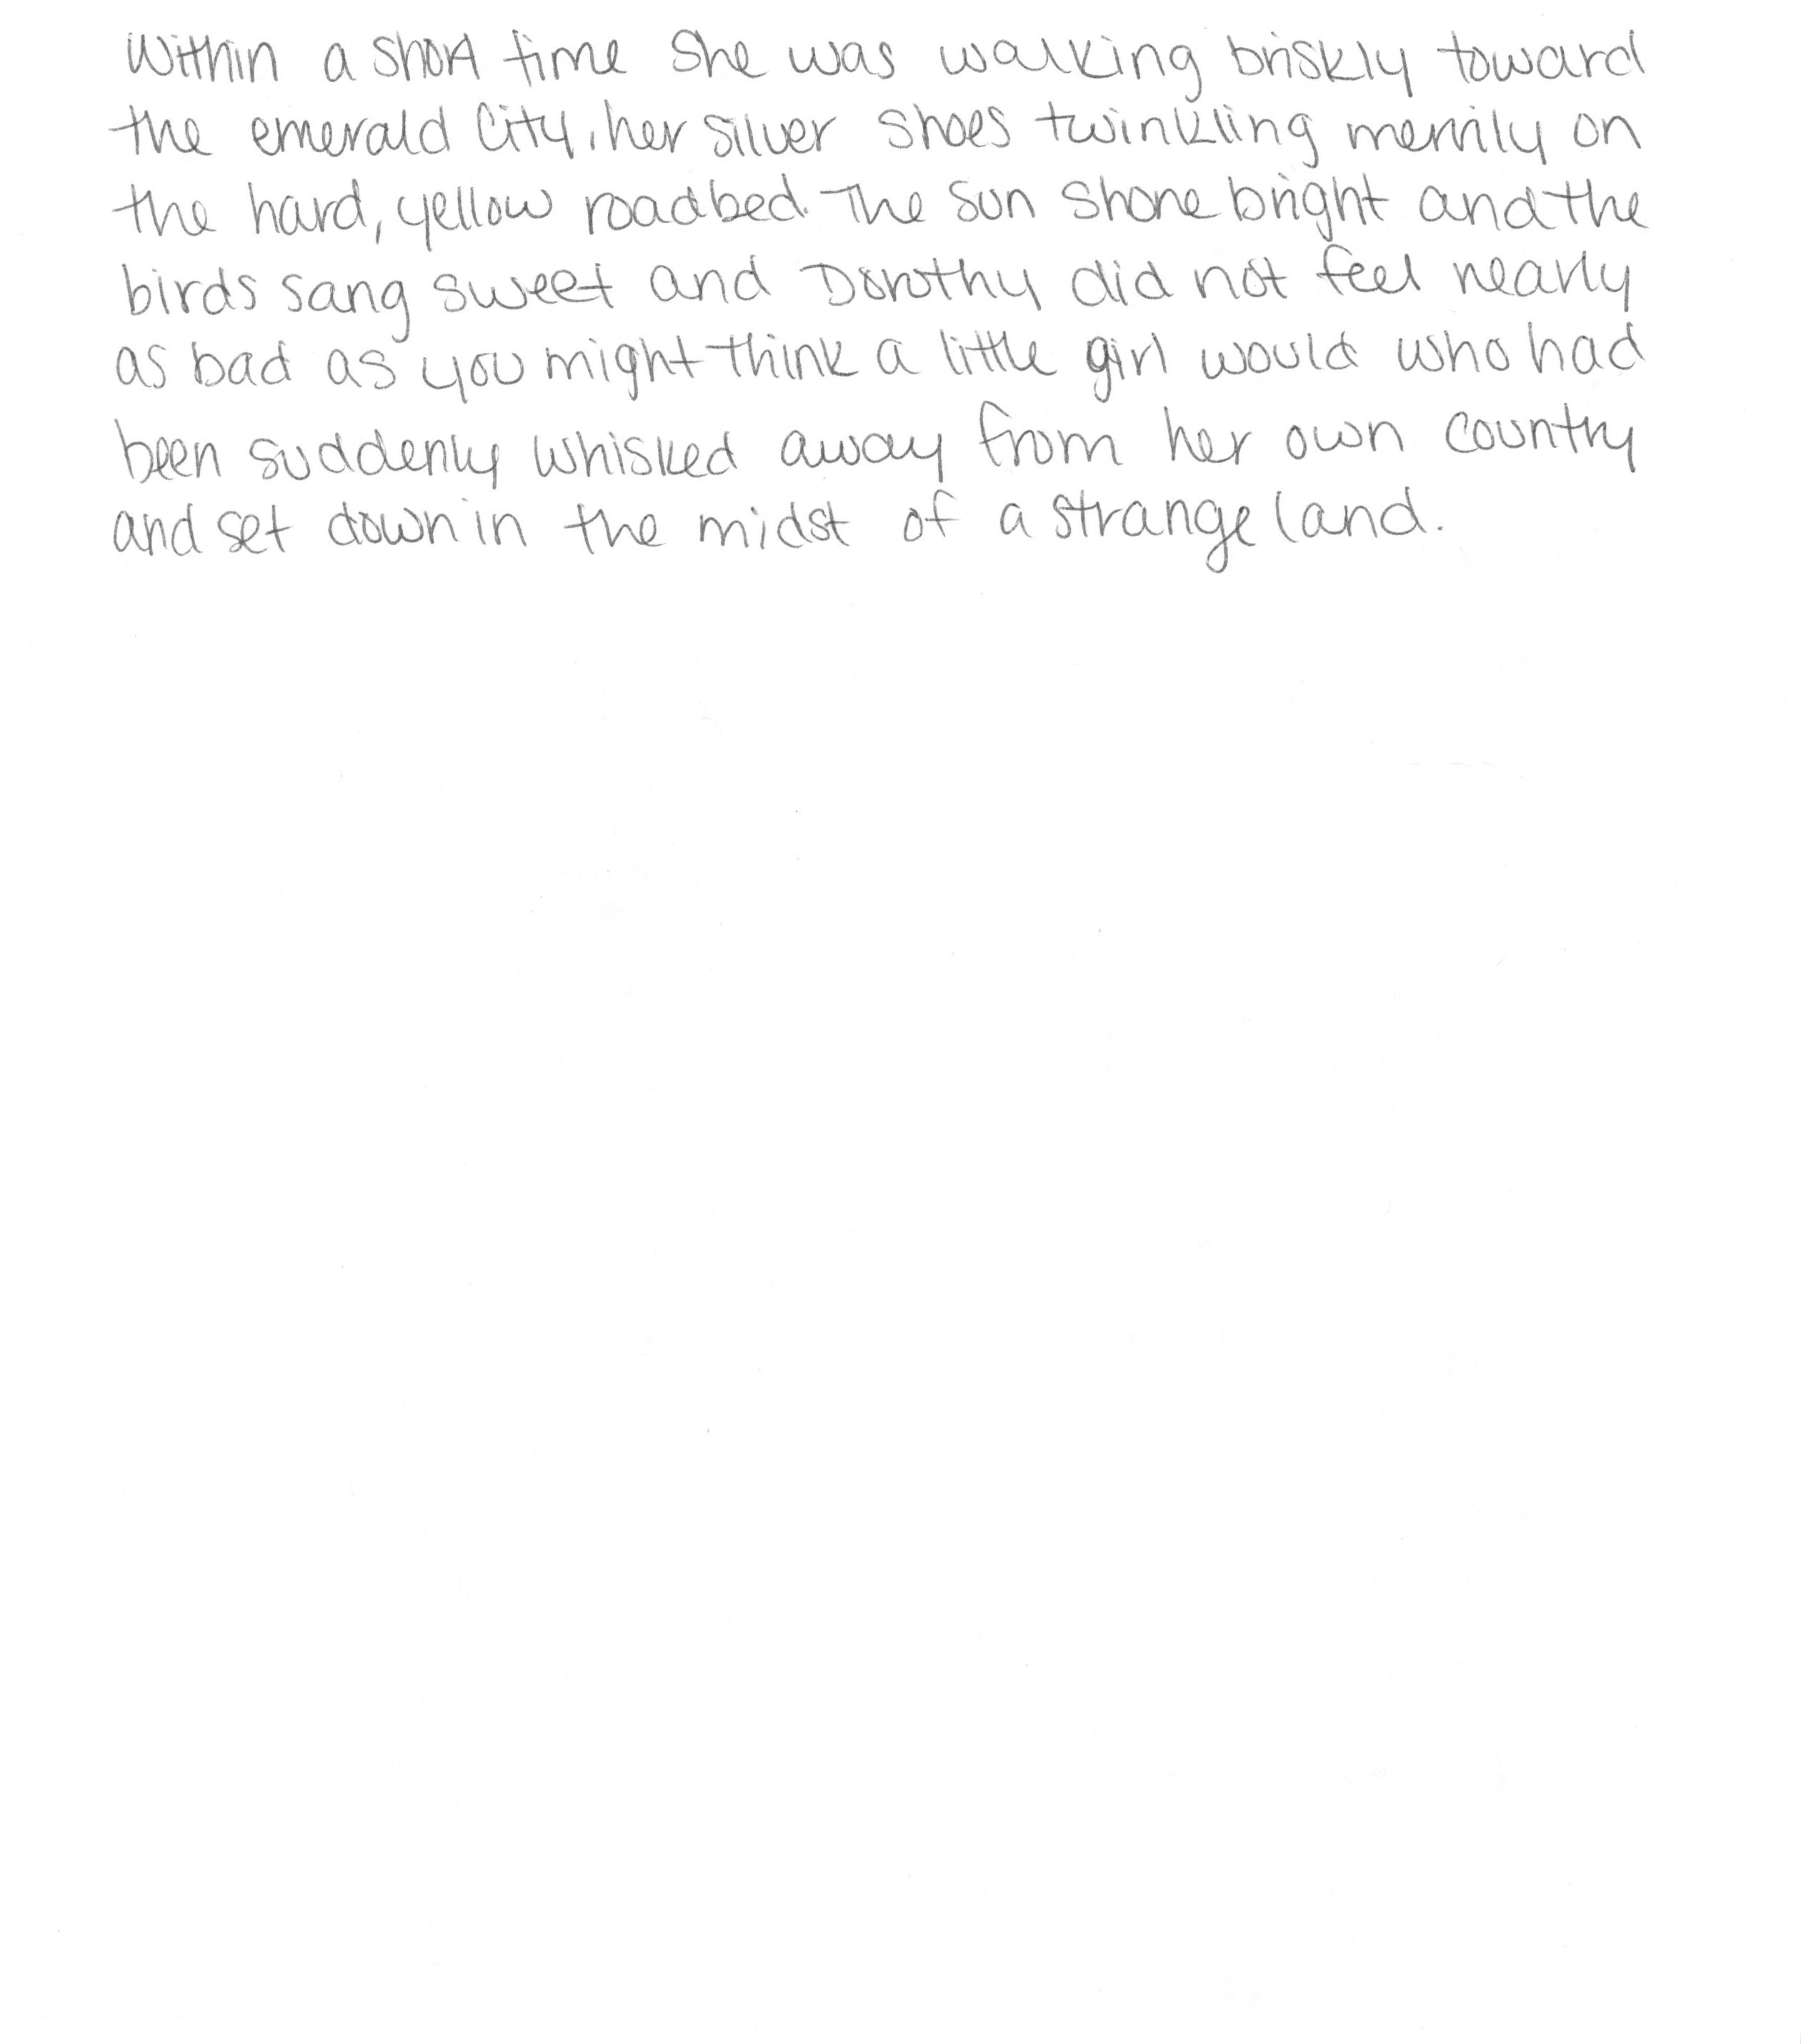 Within a short time she was walking briskly toward
the emerald City, her silver shoes twinkling merrily on
the hard, yellow roadbed. The sun shone bright and the
birds sang sweet and Dorothy did not feel nearly
as bad as you might think a little girl would who had
been suddenly whisked away from her own country
and set down in the midst of a strange land.